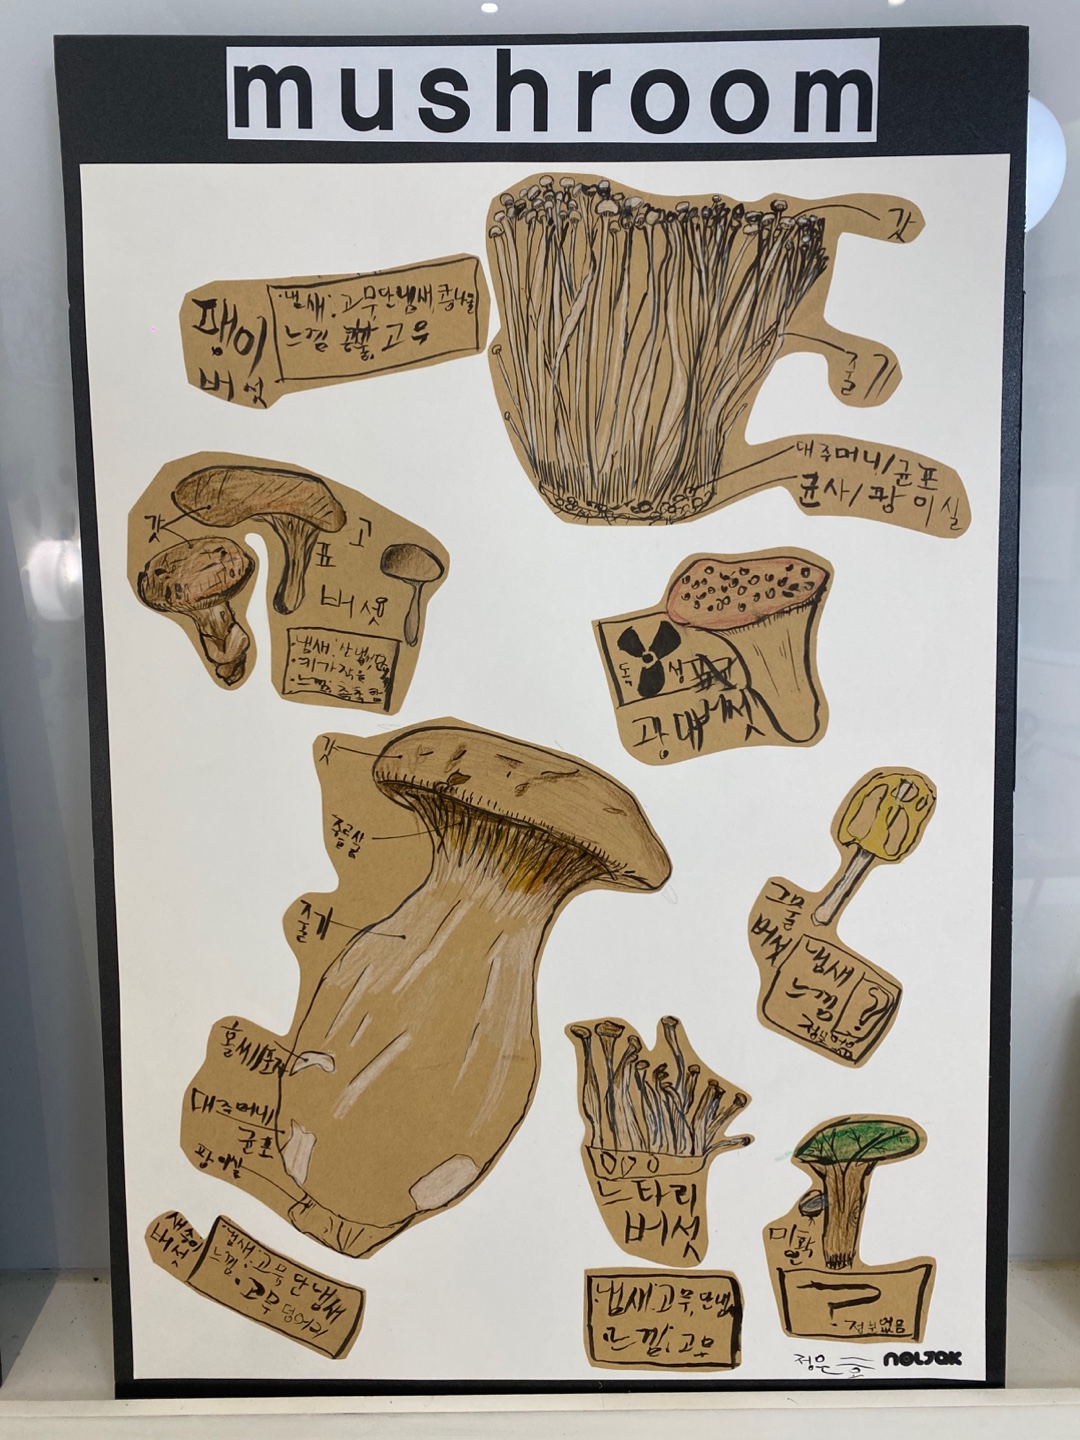 mushroom
갓
팽이
버섯
냄새: 고무, 단냄새, 콩나물
느낌 콩나물, 고무
줄기
대주머니/균포
균사/팡이실
갓
고
표
버섯
냄새: 산냄새,
·키가 작음
·느낌: 축축함
독성
광대버섯
갓
주름살
줄기
홀씨/포자
대주머니/
균포
팡이실
그물
버섯
냄새
느낌
?
정보 없음
느타리
버섯
냄새: 고무, 단냄새
느낌: 고무
미확
인
?
정보없음
새송이
버섯
냄새: 고무, 단냄새
느낌:
·고무 덩어리
정은호
NOLJAK